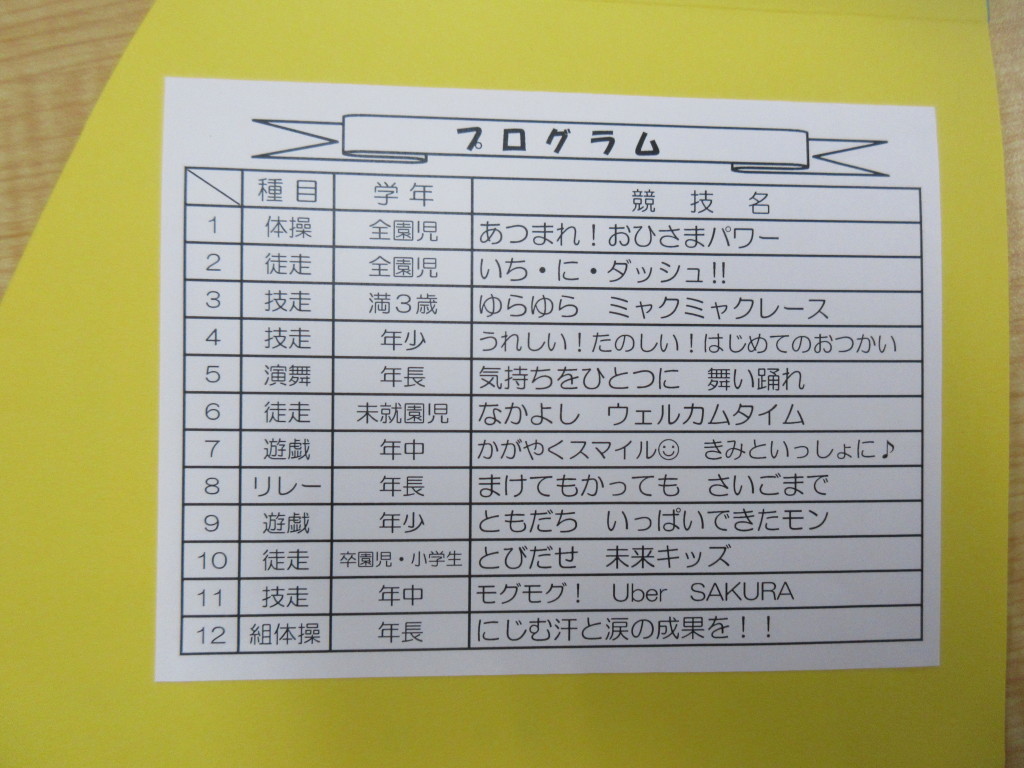 プログラム
種目 学年 競技名
1 体操 全園児 あつまれ！おひさまパワー
2 徒走 全園児 いち・に・ダッシュ!!
3 技走 満３歳 ゆらゆら　ミャクミャクレース
4 技走 年少 うれしい！たのしい！はじめてのおつかい
5 演舞 年長 気持ちをひとつに　舞い踊れ
6 徒走 未就園児 なかよし　ウェルカムタイム
7 遊戯 年中 かがやくスマイル☺　きみといっしょに♪
8 リレー 年長 まけてもかっても　さいごまで
9 遊戯 年少 ともだち　いっぱいできたモン
10 徒走 卒園児・小学生 とびだせ　未来キッズ
11 技走 年中 モグモグ！　Uber　SAKURA
12 組体操 年長 にじむ汗と涙の成果を！！